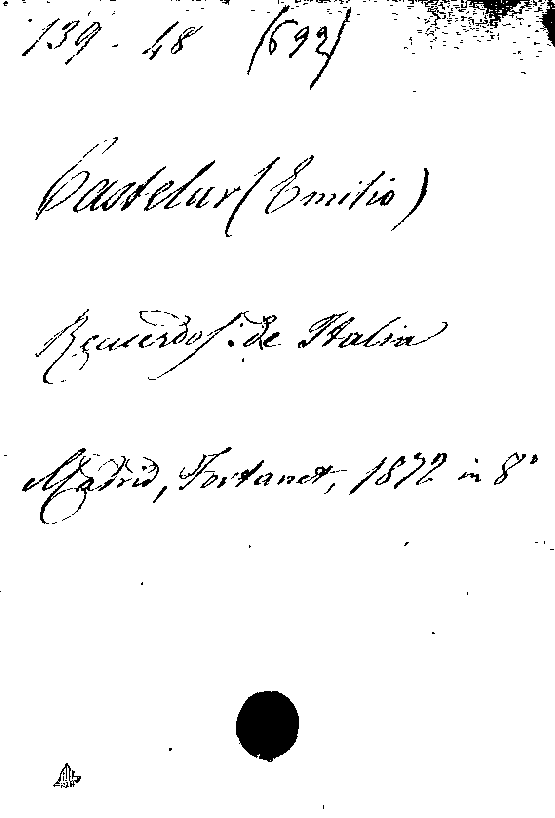 139-48 (692)
Castelar (Emilio)
Recuerdos de Italia
Madrid, Fortanet, 1872 in 8º